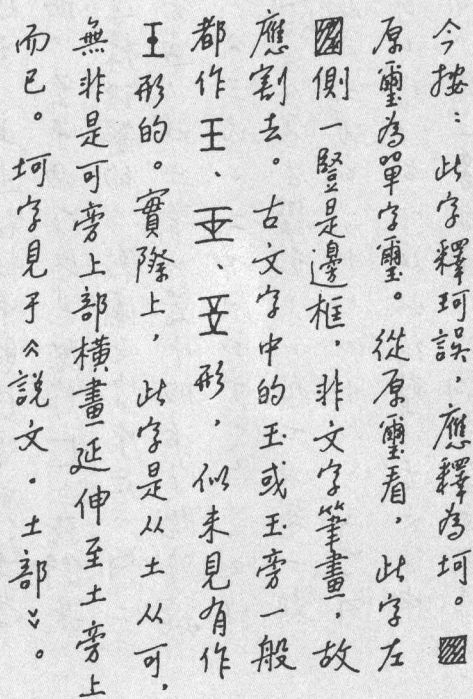 今按：此字釋珂誤，應釋為坷。
原璽為單字璽。從原璽看，此字左
側一豎是邊框，非文字筆畫，故
應割去。古文字中的玉或玉旁一般
都作王、𠀐、形，似未見有作
王形的。實際上，此字是从土从可，
無非是可旁上部橫畫延伸至土旁上
而已。坷字見于《說文·土部》。